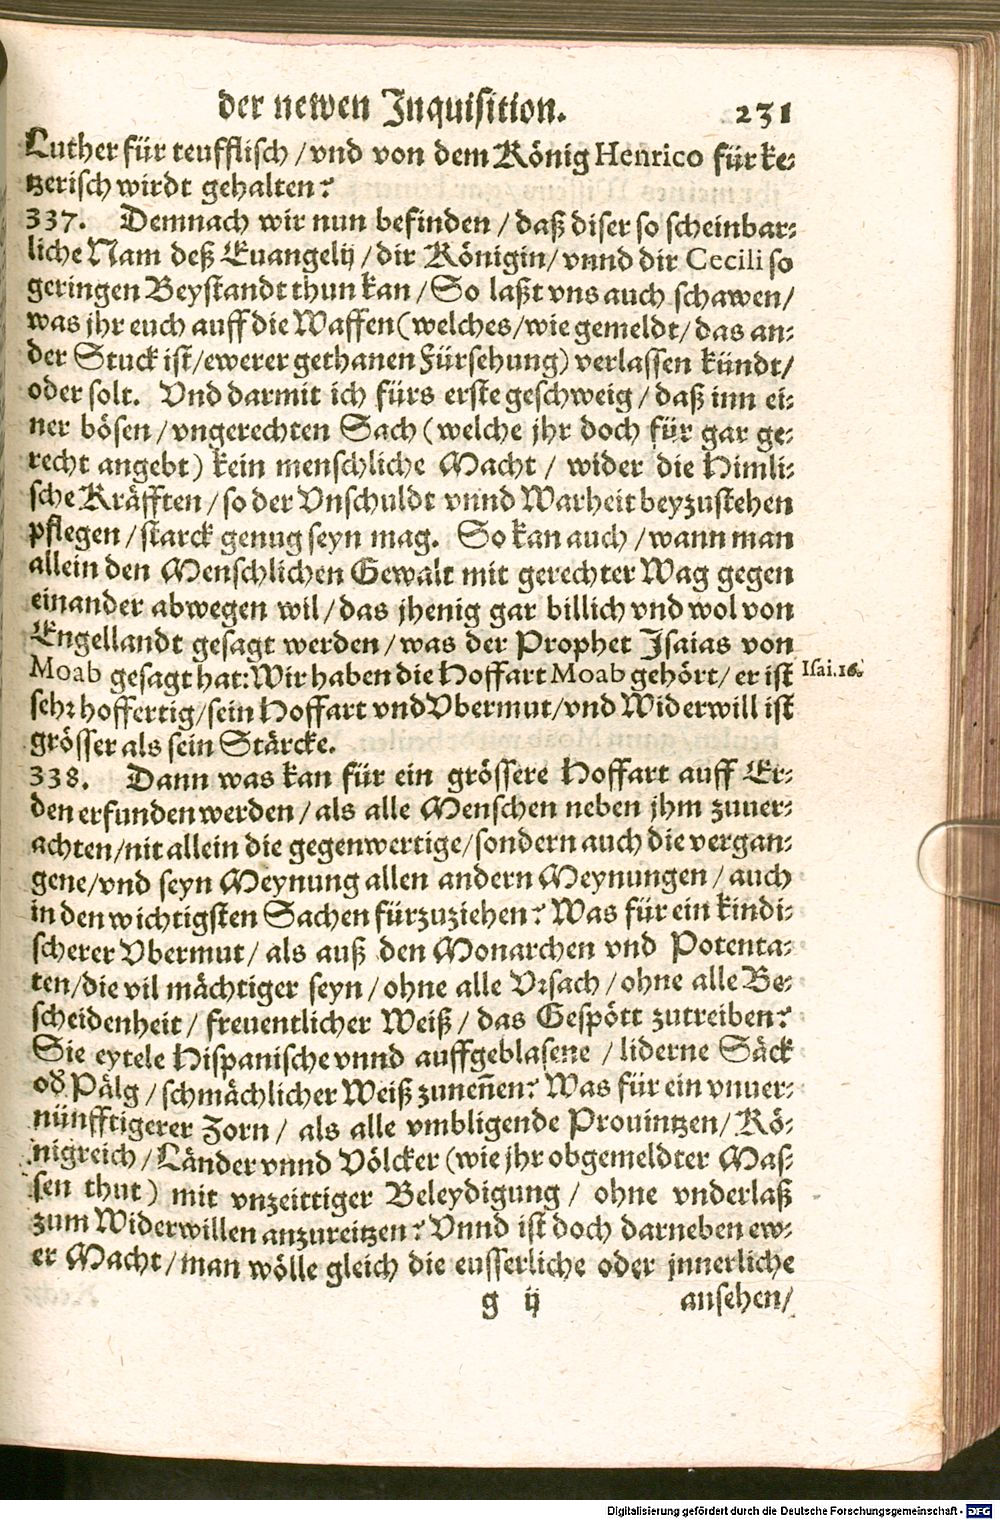 der newen Inquisition. 231
Luther für teufflisch / vnd von dem König Henrico für ke⸗
tzerisch wirdt gehalten?
337. Demnach wir nun befinden / daß diser so scheinbar⸗
liche Nam deß Euangelij / dir Königin / vnnd dir Cecili so
geringen Beystandt thun kan / So laßt vns auch schawen /
was jhr euch auff die Waffen (welches / wie gemeldt / das an⸗
der Stuck ist / ewerer gethanen Fürsehung) verlassen kündt /
oder solt. Vnd darmit ich fürs erste geschweig / daß inn ei⸗
ner bösen / vngerechten Sach (welche jhr doch für gar ge⸗
recht angebt) kein menschliche Macht / wider die Himli⸗
sche Kräfften / so der Vnschuldt vnnd Warheit beyzustehen
pflegen / starck genug seyn mag. So kan auch / wann man
allein den Menschlichen Gewalt mit gerechter Wag gegen
einander abwegen wil / das jhenig gar billich vnd wol von
Engellandt gesagt werden / was der Prophet Isaias von
Moab gesagt hat: Wir haben die Hoffart Moab gehört / er ist Isai.16.
sehr hoffertig / sein Hoffart vnd Vbermut / vnd Widerwill ist
grösser als sein Stärcke.
338. Dann was kan für ein grössere Hoffart auff Er⸗
den erfunden werden / als alle Menschen neben jhm zuuer⸗
achten / nit allein die gegenwertige / sondern auch die vergan⸗
gene / vnd seyn Meynung allen andern Meynungen / auch
in den wichtigsten Sachen fürzuziehen? Was für ein kindi⸗
scherer Vbermut / als auß den Monarchen vnd Potenta⸗
ten / die vil mächtiger seyn / ohne alle Vrsach / ohne alle Be⸗
scheidenheit / freuentlicher Weiß / das Gespött zutreiben?
Sie eytele Hispanische vnnd auffgeblasene / liderne Säck
od̕ Pälg / schmächlicher Weiß zuneñen? Was für ein vnuer⸗
nünfftigerer Zorn / als alle vmbligende Prouintzen / Kö⸗
nigreich / Länder vnnd Völcker (wie jhr obgemeldter Mas⸗
sen thut) mit vnzeittiger Beleydigung / ohne vnderlaß
zum Widerwillen anzureitzen? Vnnd ist doch darneben ew⸗
er Macht / man wölle gleich die eusserliche oder jnnerliche
g ij ansehen /
Digitalisierung gefördert durch die Deutsche Forschungsgemeinschaft - DFG